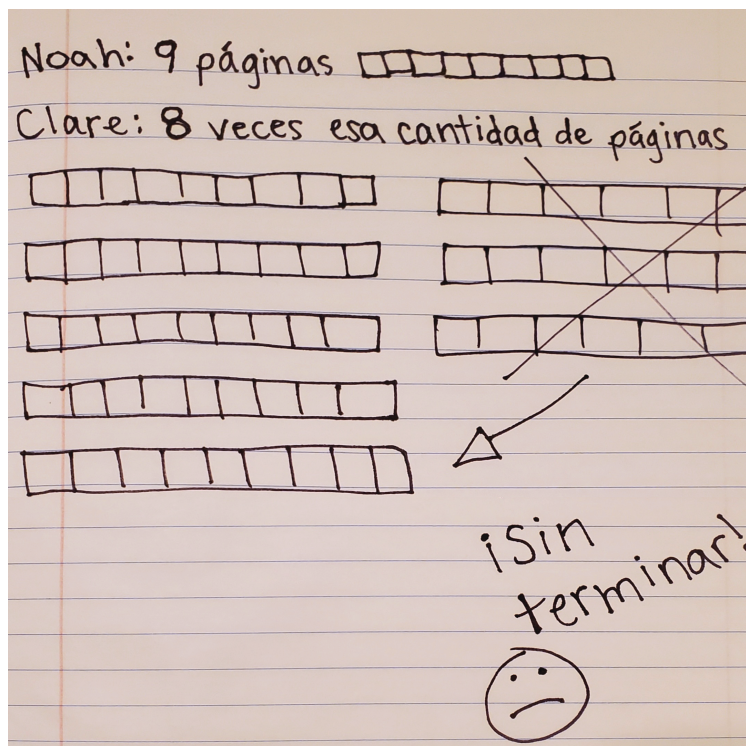 Noah: 9 páginas
Clare: 8 veces esa cantidad de páginas
¡Sin
terminar!